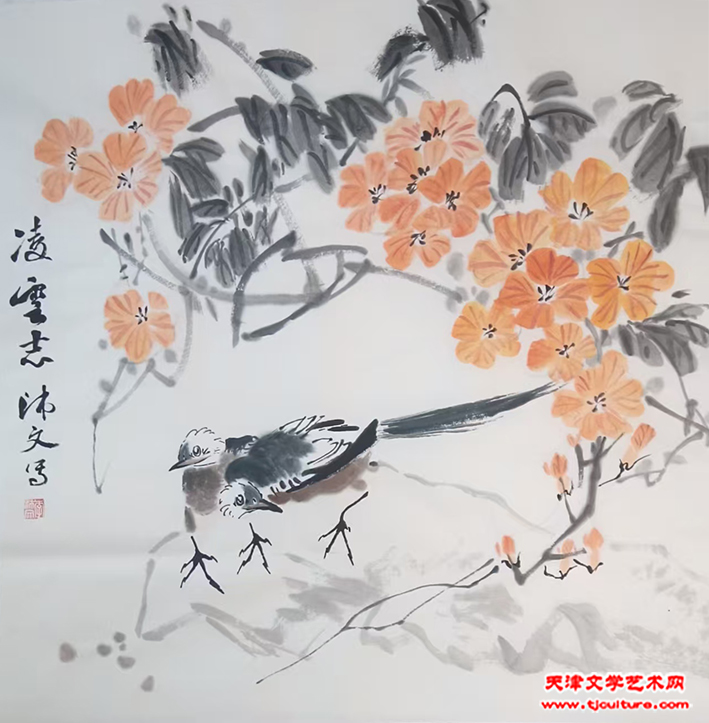 凌雲志
沛文写
天津文学艺术网
www.tjculture.com